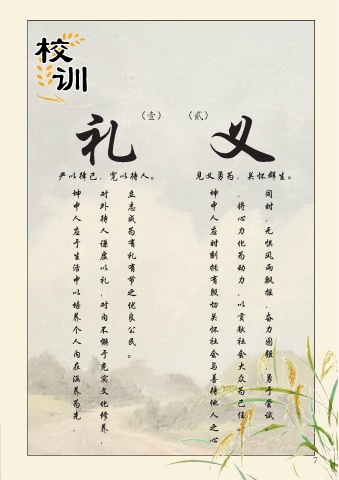 校训
（壹）
礼
严以律己，宽以待人。
坤中人应于生活中以培养个人内在涵养为先。
对外待人谦虚以礼，对内不懈于充实文化修养，
立志成为有礼有节之优良公民。
（贰）
义
见义勇为，关怀群生。
坤中人应时刻拥有殷切关怀社会与善待他人之心
，将心力化为动力，以贡献社会大众为己任。
同时，无惧风雨飘摇，奋力图强，勇于尝试
7